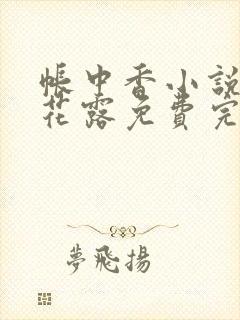 帳中香小說
花露免費完
夢飛揚